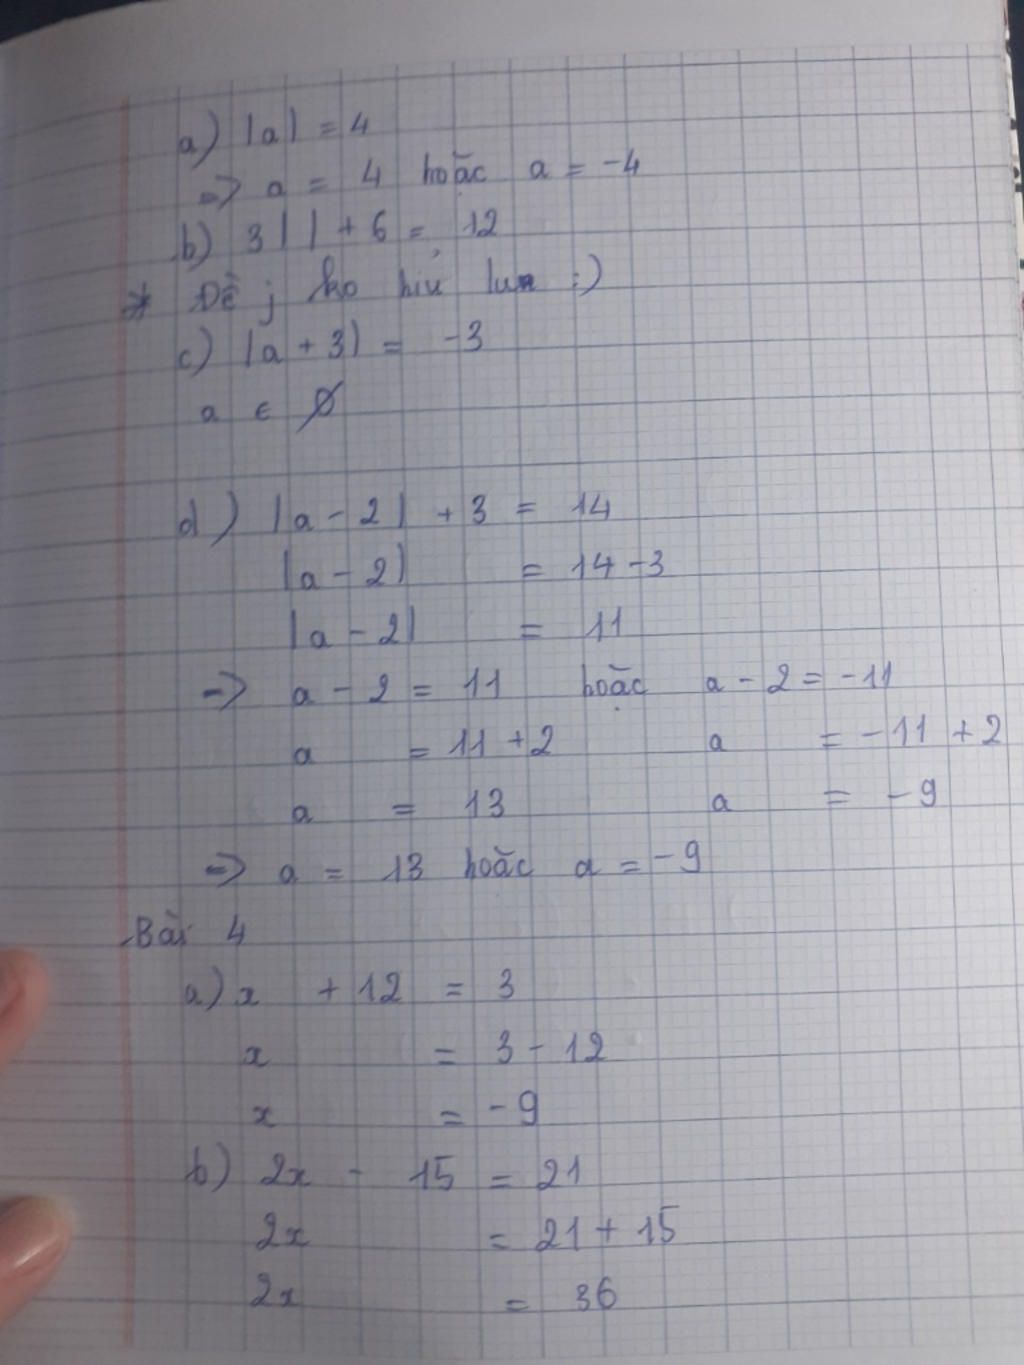 a) |a| = 4
=> a = 4 hoặc a = -4
b) 3| | + 6 = 12
* Đề j ko hiu lun :)
c) |a + 3| = -3
a ∈ ∅
d) |a - 2| + 3 = 14
|a - 2| = 14 - 3
|a - 2| = 11
=> a - 2 = 11 hoặc a - 2 = -11
a = 11 + 2 a = -11 + 2
a = 13 a = -9
=> a = 13 hoặc a = -9
Bài 4
a) x + 12 = 3
x = 3 - 12
x = -9
b) 2x - 15 = 21
2x = 21 + 15
2x = 36